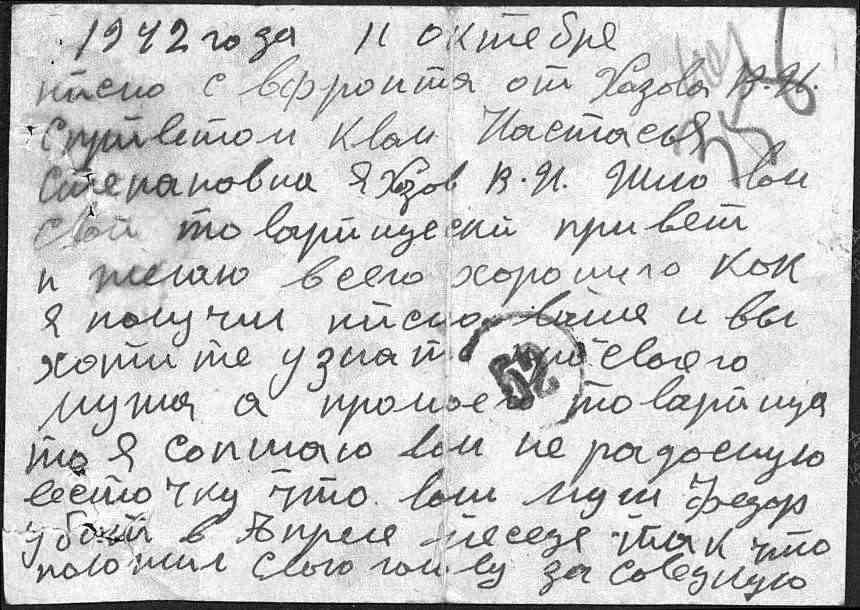 1942 года 11 октебре
писмо с вфронта от Хазова В.И.
Сприветом квам Настасья
Степановна я Хазов В.И. Шлю вам
свой товарищеский привет
и желаю всего хорошиго как
я получил писмо ваше и вы
хотите узнат просвоего
мужа а промоего товарища
то я сопшаю вам не радосную
весточку что ваш муж Федор
убит в Апреле месеце так что
положил свою голову за совецкую
52